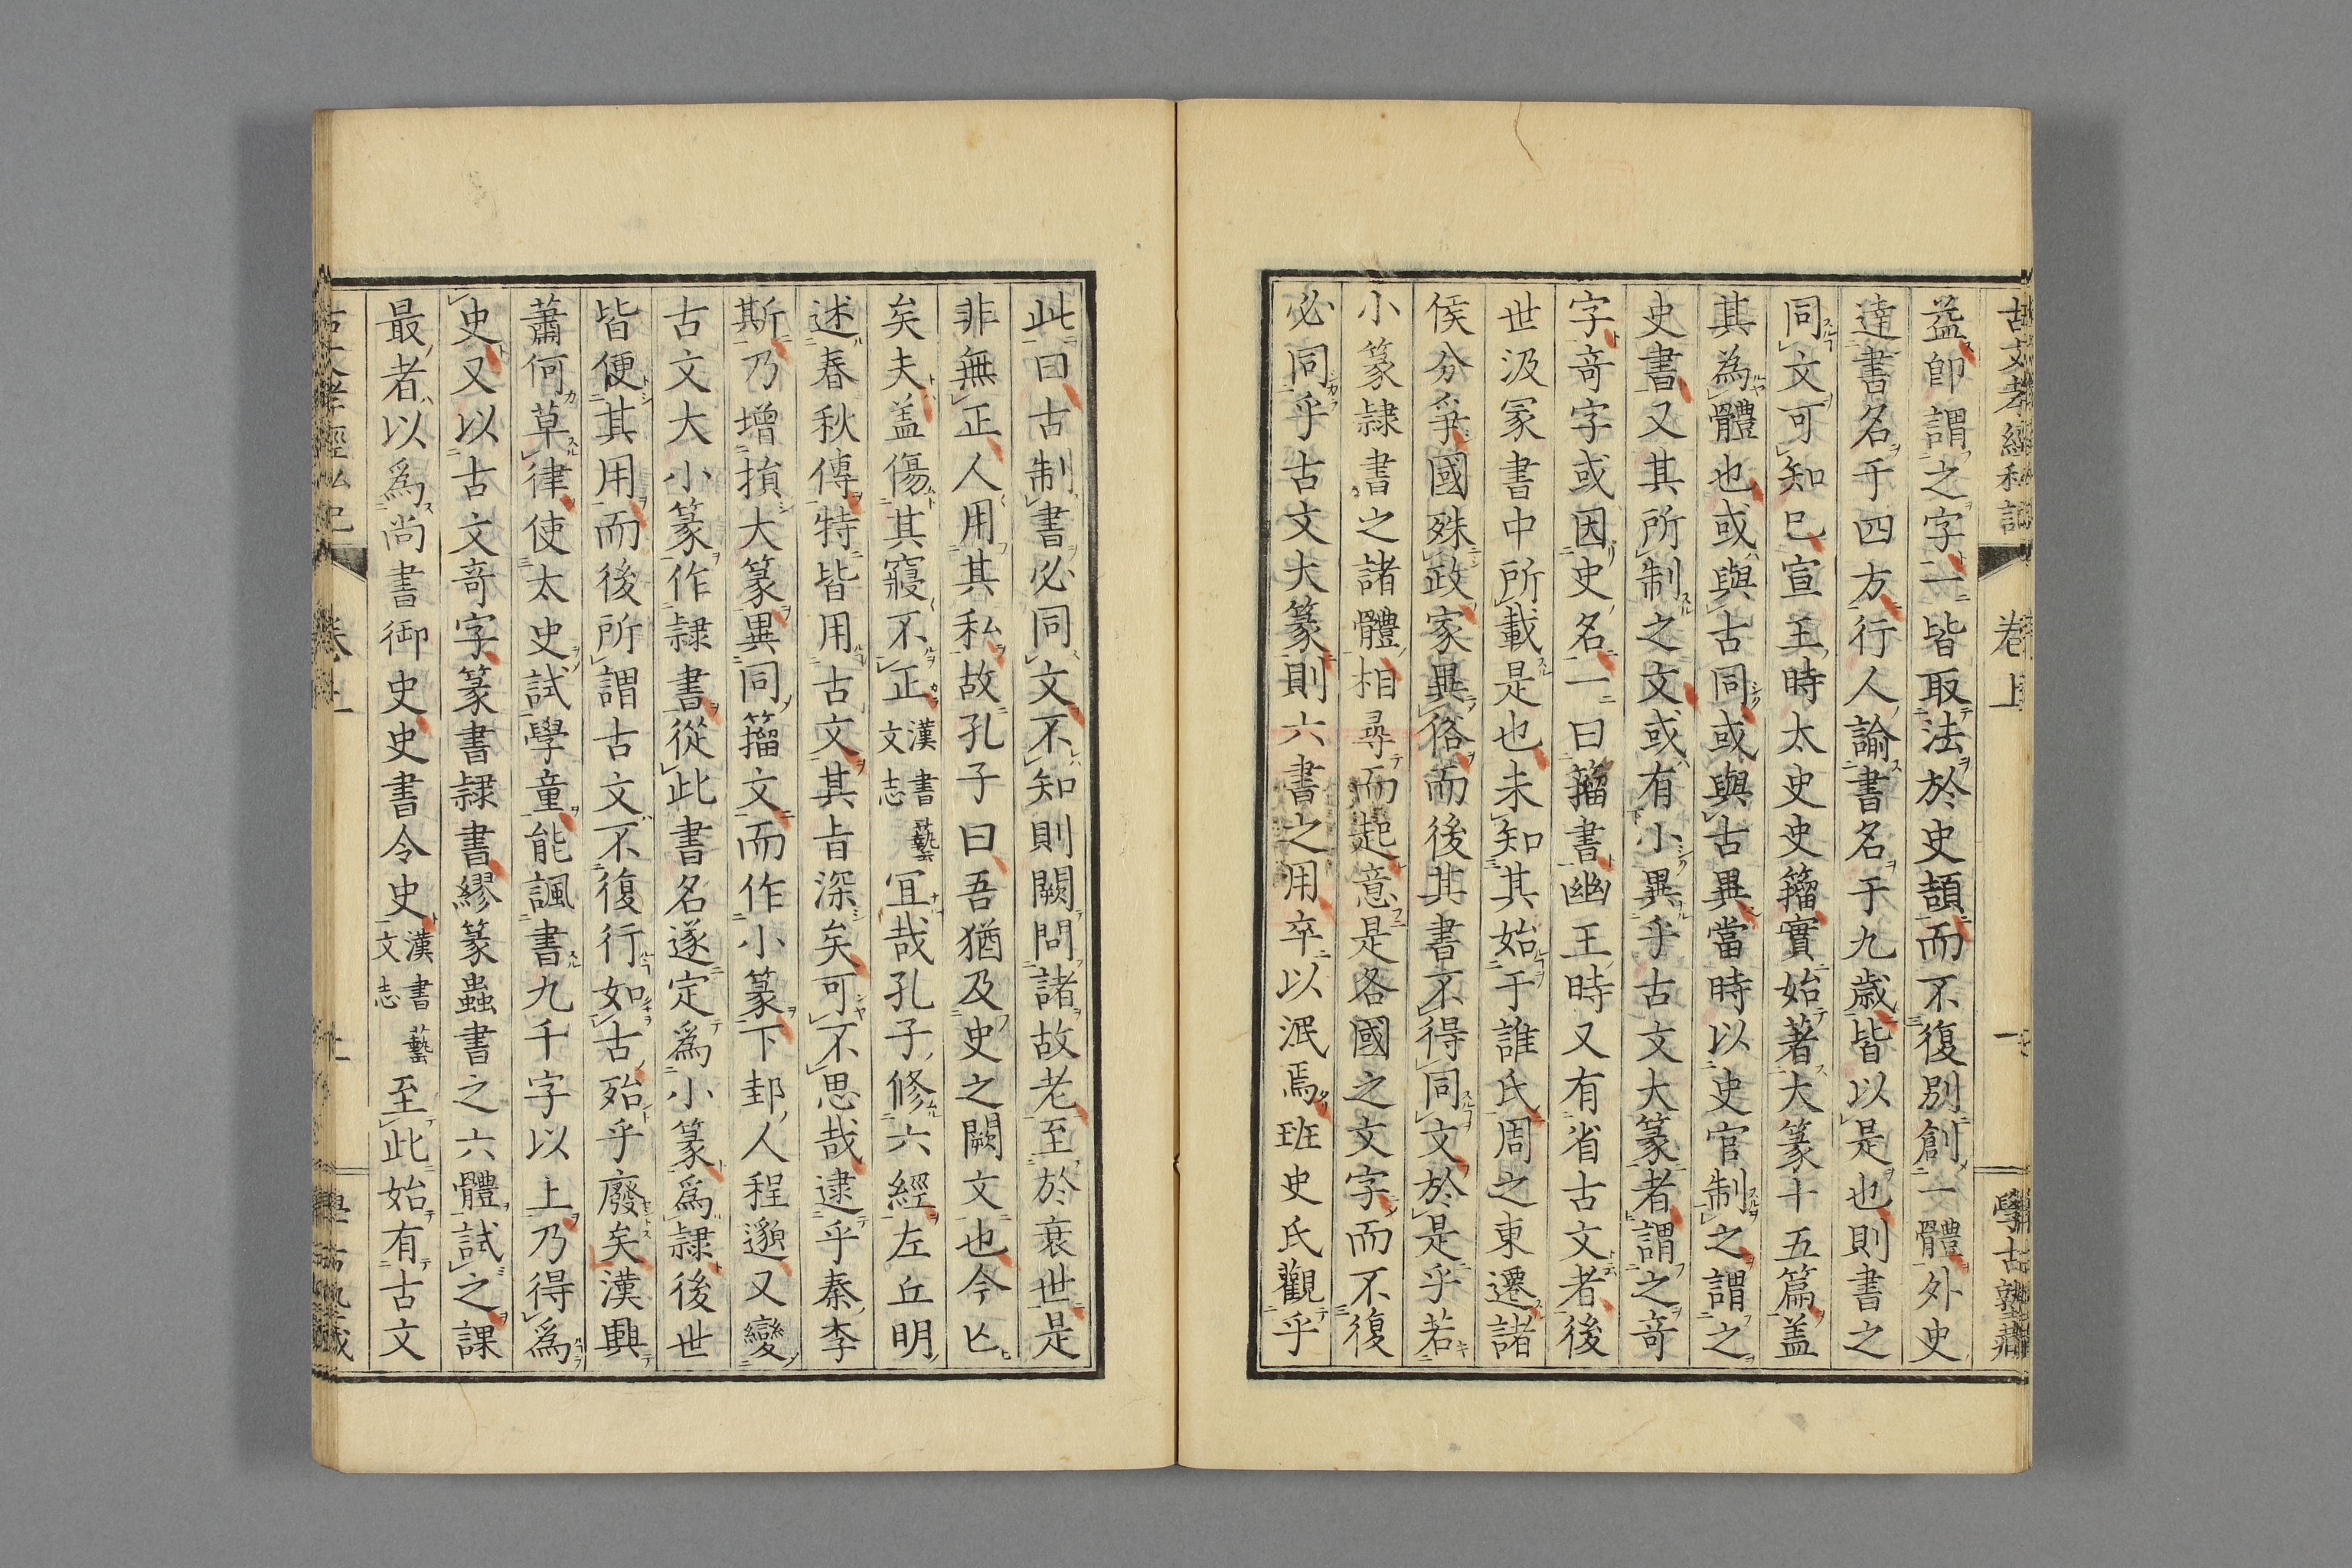 古文孝經私記 卷上 一 學古塾藏
益卽謂之字一皆取法於史頡而不復別創一體外史
達書名于四方行人諭書名于九歲皆以是也則書之
同文可知已宣王時太史史籀實始著大篆十五篇盖
其為體也或與古同或與古異當時以史官制之謂之
史書又其所制之文或有小異乎古文大篆者謂之竒
字竒字或因史名一曰籀書幽王時又有省古文者後
世汲冢書中所載是也未知其始于誰氏周之東遷諸
侯分爭國殊政家異俗而後其書不得同文於是乎若
小篆隷書之諸體相尋而起意是各國之文字而不復
必同乎古文大篆則六書之用卒以泯焉班史氏觀乎
此曰古制書必同文不知則闕問諸故老至於衰世是
非無正人用其私故孔子曰吾猶及史之闕文也今亾
矣夫盖傷其寖不正漢書藝文志宜哉孔子修六經左丘明
述春秋傳特皆用古文其旨深矣可不思哉逮乎秦李
斯乃增損大篆異同籀文而作小篆下邽人程邈又變
古文大小篆作隷書從此書名遂定爲小篆爲隷後世
皆便其用而後所謂古文不復行如古殆乎廢矣漢興
蕭何草律使太史試學童能諷書九千字以上乃得爲
史又以古文竒字篆書隷書繆篆蟲書之六體試之課
最者以爲尚書御史史書令史漢書藝文志至此始有古文